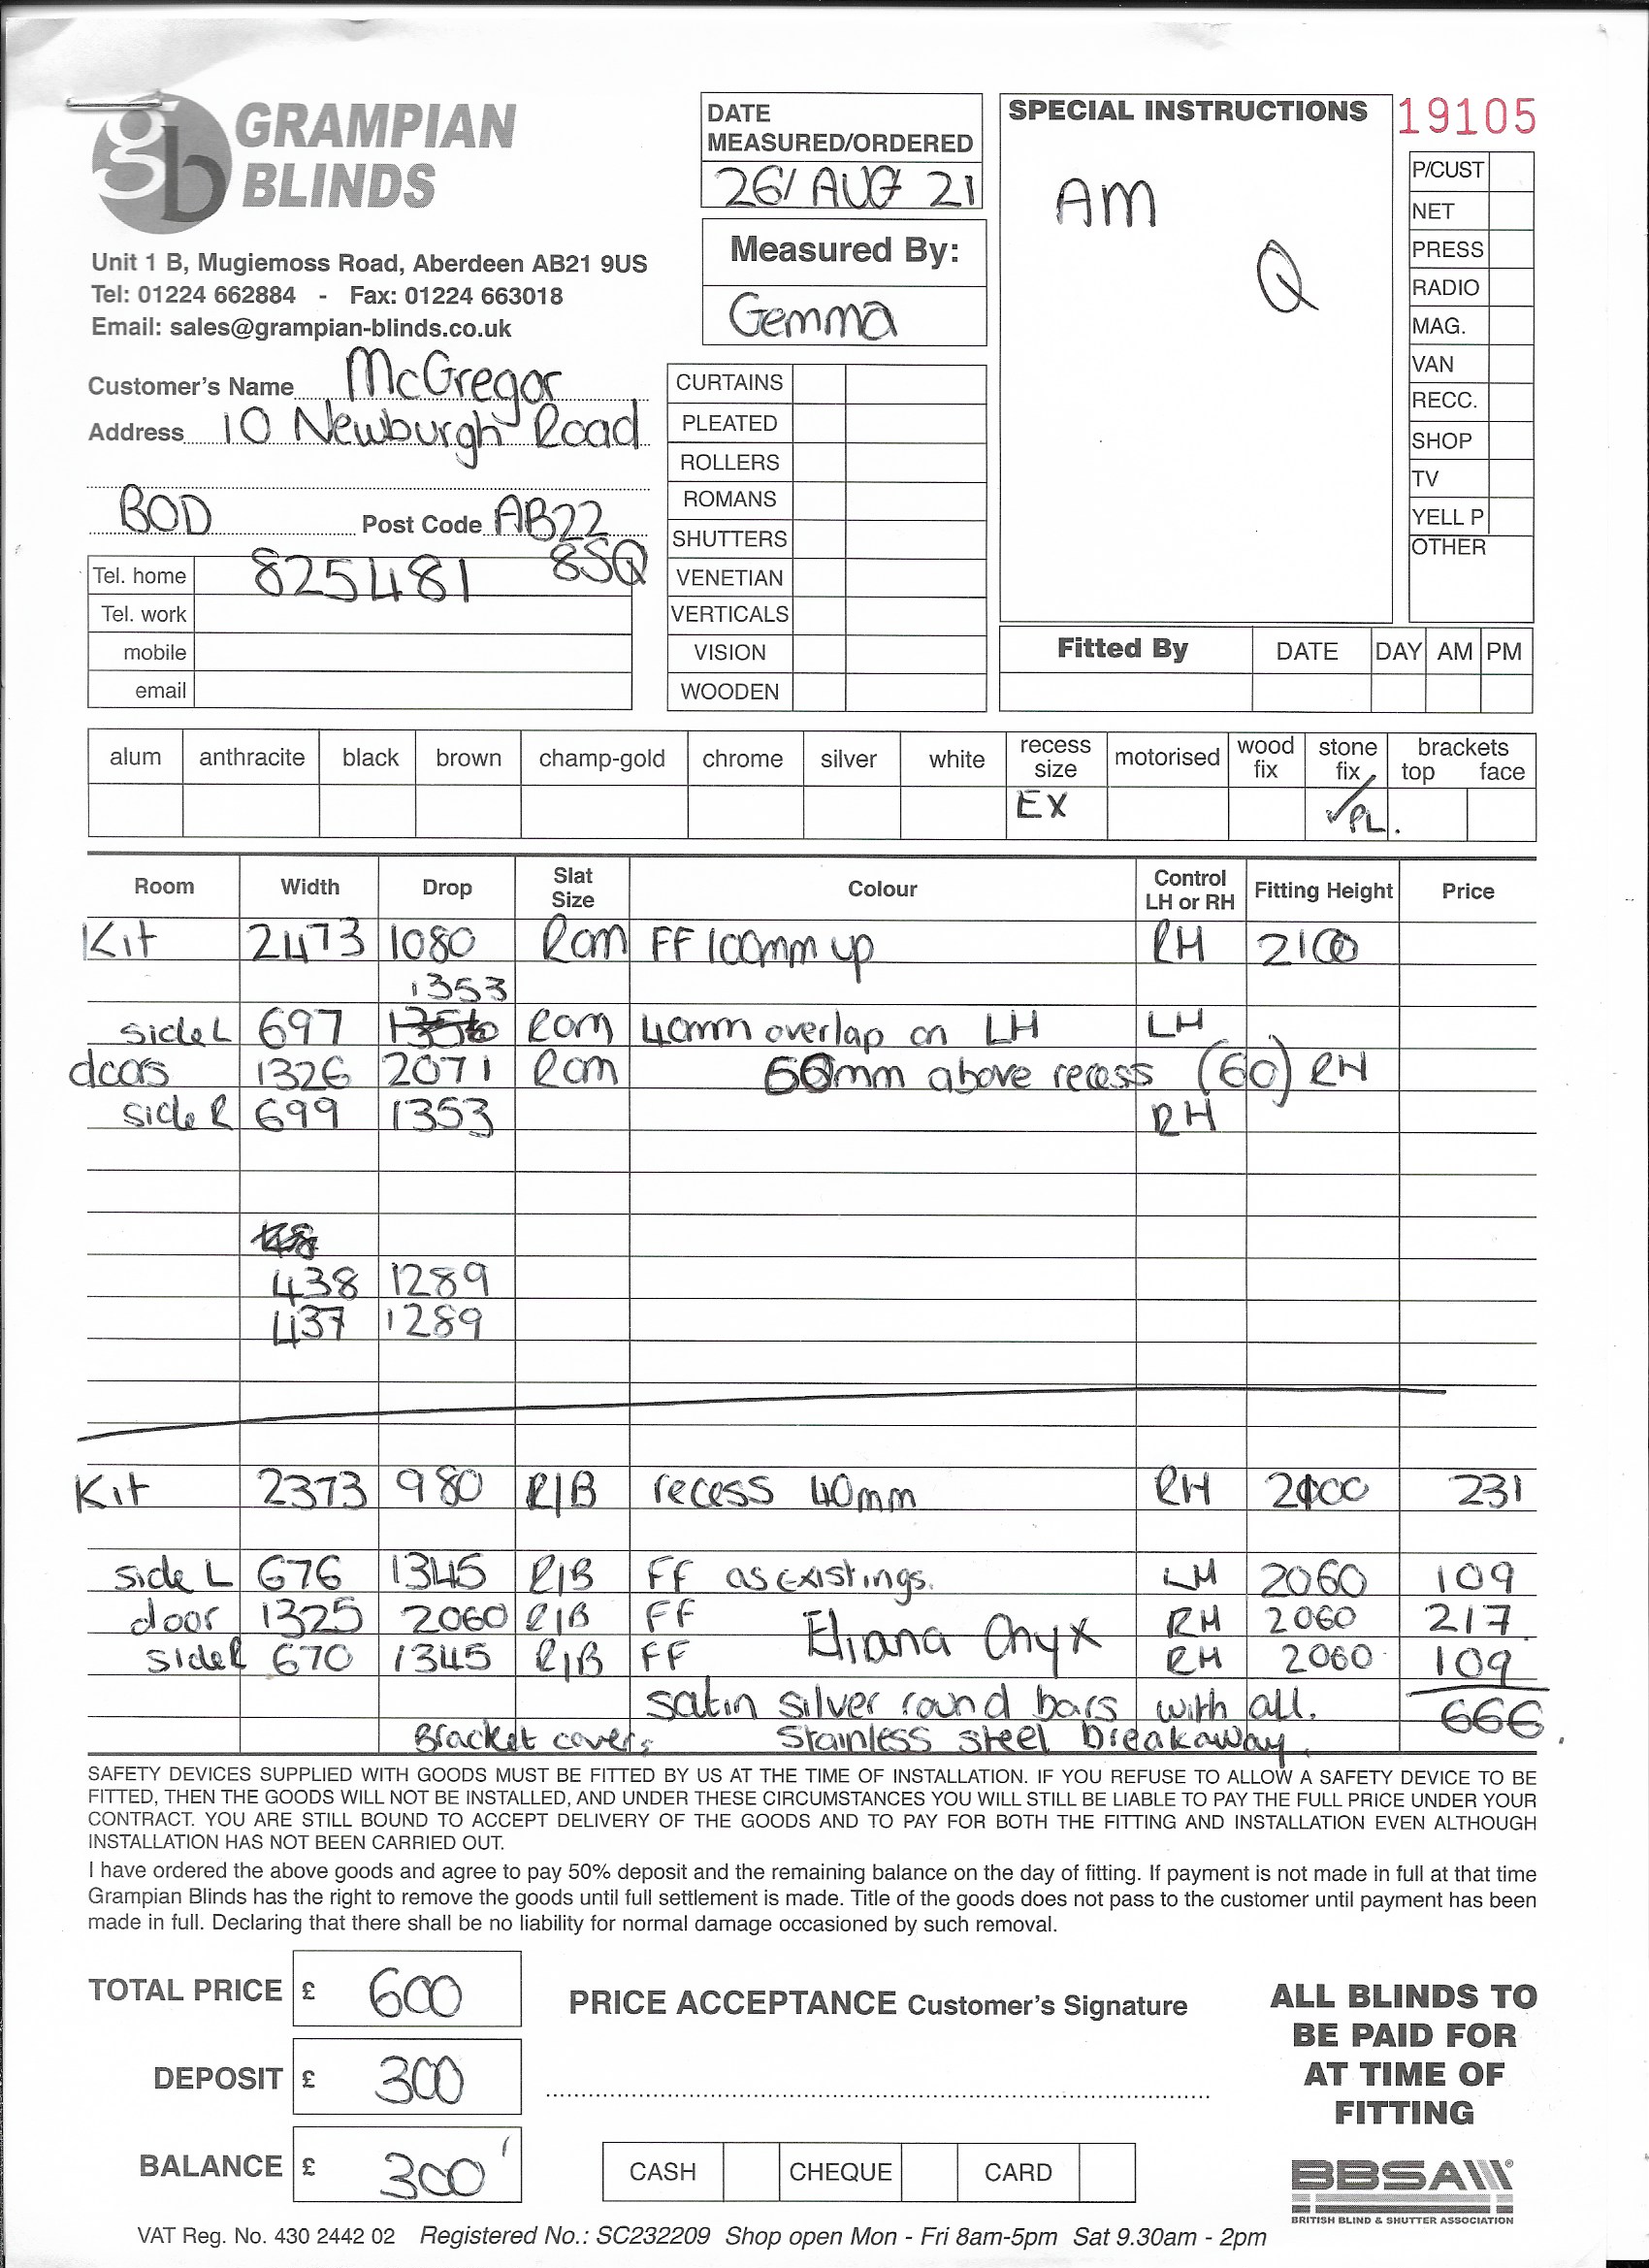 GRAMPIAN
BLINDS
Unit 1 B, Mugiemoss Road, Aberdeen AB21 9US
Tel: 01224 662884 - Fax: 01224 663018
Email: sales@grampian-blinds.co.uk
DATE
MEASURED/ORDERED
26/ AUG 21
Measured By:
Gemma
SPECIAL INSTRUCTIONS
AM
Q
19105
P/CUST
NET
PRESS
RADIO
MAG.
VAN
RECC.
SHOP
TV
YELL P
OTHER
Customer's Name McGregor
Address 10 Newburgh Road
BOD Post Code AB22
8SQ
Tel. home 825481
Tel. work
mobile
email
CURTAINS
PLEATED
ROLLERS
ROMANS
SHUTTERS
VENETIAN
VERTICALS
VISION
WOODEN
Fitted By DATE DAY AM PM
alum anthracite black brown champ-gold chrome silver white recess size motorised wood fix stone fix brackets top face
EX ✓PL.
Room Width Drop Slat Size Colour Control LH or RH Fitting Height Price
Kit 2473 1080 Rom FF 100mm up RH 2100
1353
side L 697 Rom 40mm overlap on LH LH
doors 1326 2071 Rom 60mm above recess (60) RH
side R 699 1353 RH
438 1289
437 1289
Kit 2373 980 R/B recess 40mm RH 2000 231
side L 676 1345 R/B FF as existings. LH 2060 109
door 1325 2060 R/B FF RH 2060 217
Eliana Onyx
side R 670 1345 R/B FF RH 2060 109
satin silver round bars with all. 666.
Bracket covers Stainless steel breakaway.
SAFETY DEVICES SUPPLIED WITH GOODS MUST BE FITTED BY US AT THE TIME OF INSTALLATION. IF YOU REFUSE TO ALLOW A SAFETY DEVICE TO BE
FITTED, THEN THE GOODS WILL NOT BE INSTALLED, AND UNDER THESE CIRCUMSTANCES YOU WILL STILL BE LIABLE TO PAY THE FULL PRICE UNDER YOUR
CONTRACT. YOU ARE STILL BOUND TO ACCEPT DELIVERY OF THE GOODS AND TO PAY FOR BOTH THE FITTING AND INSTALLATION EVEN ALTHOUGH
INSTALLATION HAS NOT BEEN CARRIED OUT.
I have ordered the above goods and agree to pay 50% deposit and the remaining balance on the day of fitting. If payment is not made in full at that time
Grampian Blinds has the right to remove the goods until full settlement is made. Title of the goods does not pass to the customer until payment has been
made in full. Declaring that there shall be no liability for normal damage occasioned by such removal.
TOTAL PRICE £ 600
DEPOSIT £ 300
BALANCE £ 300
PRICE ACCEPTANCE Customer's Signature
CASH CHEQUE CARD
ALL BLINDS TO
BE PAID FOR
AT TIME OF
FITTING
BBSA
BRITISH BLIND & SHUTTER ASSOCIATION
VAT Reg. No. 430 2442 02 Registered No.: SC232209 Shop open Mon - Fri 8am-5pm Sat 9.30am - 2pm